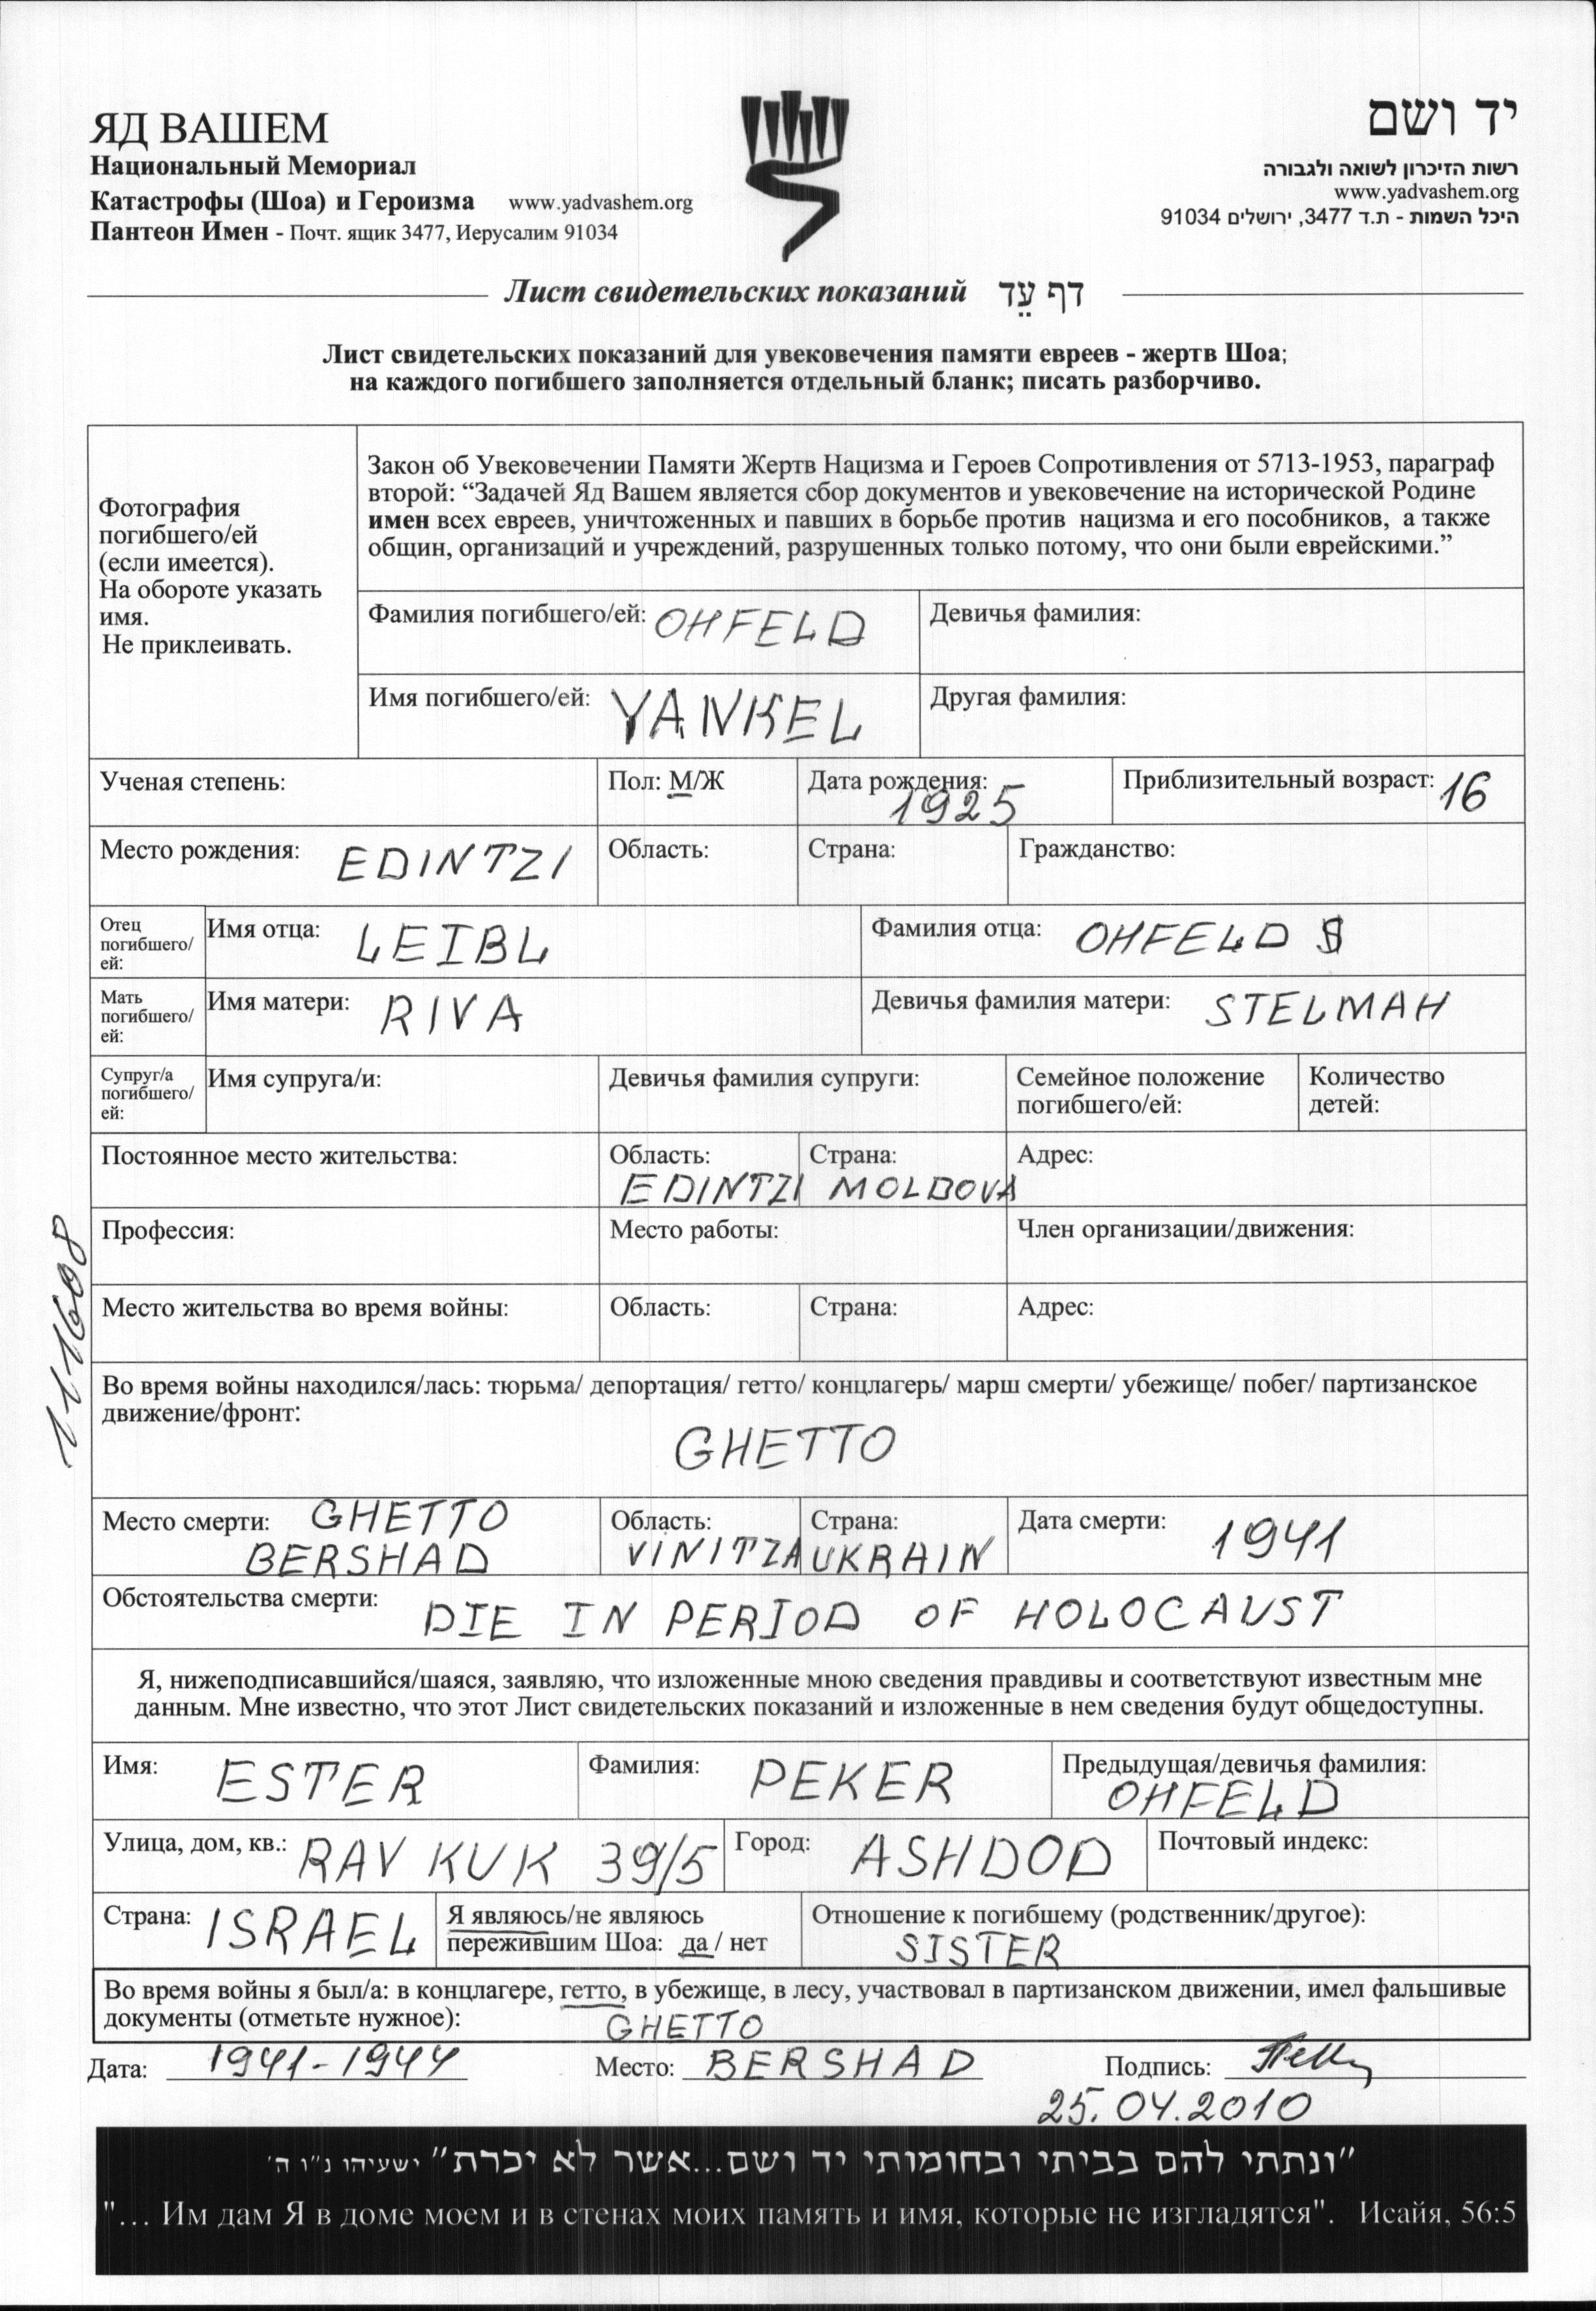 ЯД ВАШЕМ
Национальный Мемориал
Катастрофы (Шоа) и Героизма www.yadvashem.org
Пантеон Имен - Почт. ящик 3477, Иерусалим 91034
יד ושם
רשות הזיכרון לשואה ולגבורה
www.yadvashem.org
היכל השמות - ת.ד 3477, ירושלים 91034
Лист свидетельских показаний דף עֵד
Лист свидетельских показаний для увековечения памяти евреев - жертв Шоа;
на каждого погибшего заполняется отдельный бланк; писать разборчиво.
Фотография
погибшего/ей
(если имеется).
На обороте указать
имя.
Не приклеивать.
Закон об Увековечении Памяти Жертв Нацизма и Героев Сопротивления от 5713-1953, параграф
второй: “Задачей Яд Вашем является сбор документов и увековечение на исторической Родине
имен всех евреев, уничтоженных и павших в борьбе против нацизма и его пособников, а также
общин, организаций и учреждений, разрушенных только потому, что они были еврейскими.”
Фамилия погибшего/ей: OHFELD Девичья фамилия:
Имя погибшего/ей: YANKEL Другая фамилия:
Ученая степень: Пол: М/Ж Дата рождения: 1925 Приблизительный возраст: 16
Место рождения: EDINTZI Область: Страна: Гражданство:
Отец
погибшего/
ей:
Имя отца: LEIBL Фамилия отца: OHFELD
Мать
погибшего/
ей:
Имя матери: RIVA Девичья фамилия матери: STELMAH
Супруг/а
погибшего/
ей:
Имя супруга/и: Девичья фамилия супруги: Семейное положение
погибшего/ей:
Количество
детей:
Постоянное место жительства: Область: Страна: Адрес:
EDINTZI MOLDOVA
Профессия: Место работы: Член организации/движения:
111608
Место жительства во время войны: Область: Страна: Адрес:
Во время войны находился/лась: тюрьма/ депортация/ гетто/ концлагерь/ марш смерти/ убежище/ побег/ партизанское
движение/фронт:
GHETTO
Место смерти: GHETTO Область: Страна: Дата смерти: 1941
BERSHAD VINITZA UKRAIN
Обстоятельства смерти: DIE IN PERIOD OF HOLOCAUST
Я, нижеподписавшийся/шаяся, заявляю, что изложенные мною сведения правдивы и соответствуют известным мне
данным. Мне известно, что этот Лист свидетельских показаний и изложенные в нем сведения будут общедоступны.
Имя: ESTER Фамилия: PEKER Предыдущая/девичья фамилия:
OHFELD
Улица, дом, кв.: RAV KUK 39/5 Город: ASHDOD Почтовый индекс:
Страна: ISRAEL Я являюсь/не являюсь
пережившим Шоа: да / нет
Отношение к погибшему (родственник/другое):
SISTER
Во время войны я был/а: в концлагере, гетто, в убежище, в лесу, участвовал в партизанском движении, имел фальшивые
документы (отметьте нужное): GHETTO
Дата: 1941-1944 Место: BERSHAD Подпись:
25.04.2010
"ונתתי להם בביתי ובחומותי יד ושם...אשר לא יכרת" ישעיהו נ"ו ה'
"... Им дам Я в доме моем и в стенах моих память и имя, которые не изгладятся". Исайя, 56:5